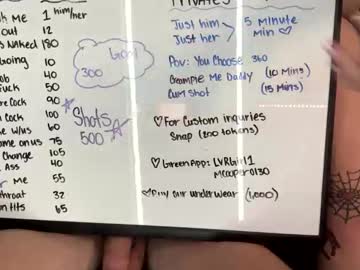 h Me 1 him/her
out 12
s Naked 180
Going 10
ob 40
Fuck 50
re Cock 90
n Cock 100
e w/us 60
ome on us 75
Change 105
Ass 40
r Me 55
throat 32
on tits 65
Goal
300
Shots
500
PRIVATES
Just him
Just her
5 Minute
Min
POV: You Choose 360
Creampie Me Daddy (10 Mins)
Cum Shot (15 Mins)
♡ For Custom Inquiries
Snap (200 tokens)
♡ Green App: LVRGirl1
Mcooper0130
♡ Buy our underwear (1,000)